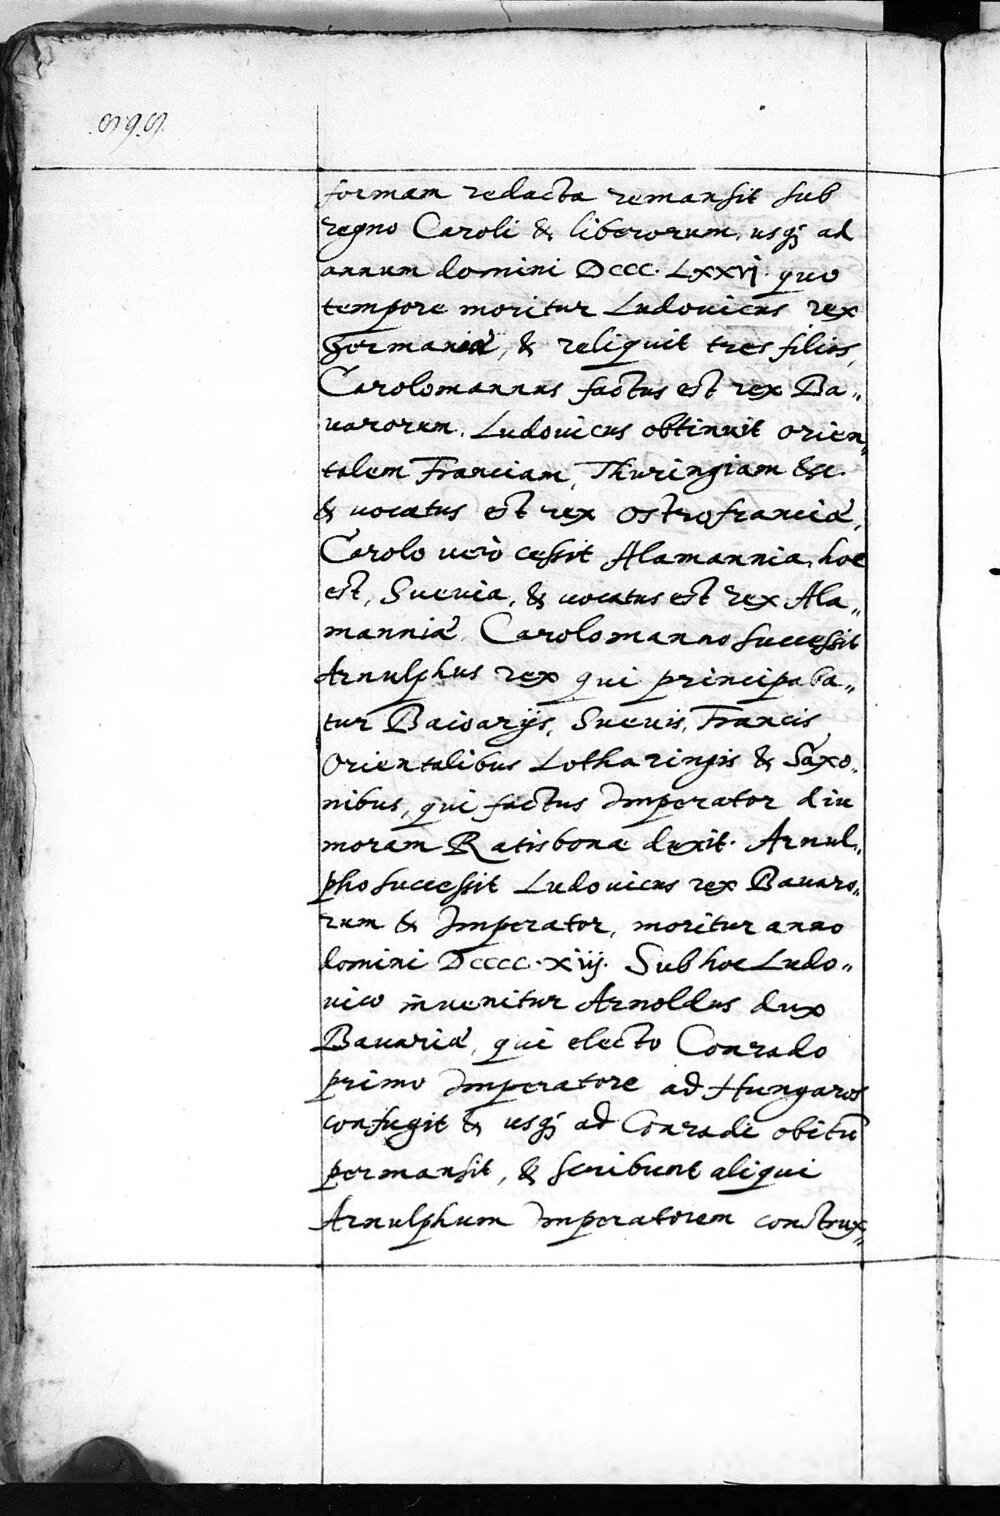 formam redacta remansit sub
regno Caroli & liberorum, usq; ad
annum domini DCCC. LXXVI. quo
tempore moritur Ludouicus rex
Germaniæ, & reliquit tres filios,
Carolomannus factus est rex Ba„
uarorum. Ludouicus obtinuit orien„
talem Franciam, Thuringiam &c.
& uocatus est rex ostrofranciæ,
Carolo uerò cessit Alamannia, hoc
est, Sueuia, & uocatus est rex Ala„
manniæ. Carolomanno successit
Arnulphus rex qui principaba„
tur Baioarijs, Sueuis, Francis
Orientalibus Lotharingis & Saxo„
nibus, qui factus Imperator diu
moram Ratisbonæ duxit. Arnul„
pho successit Ludouicus rex Bauaro„
rum & Imperator, moritur anno
domini DCCCC. XIIJ. Sub hoc Ludo„
uico inuenitur Arnoldus dux
Bauariæ, qui electo Conrado
primo Imperatore ad Hungaros
confugit & usq; ad Conradi obitū
permansit, & scribunt aliqui
Arnulphum Imperatorem construx„